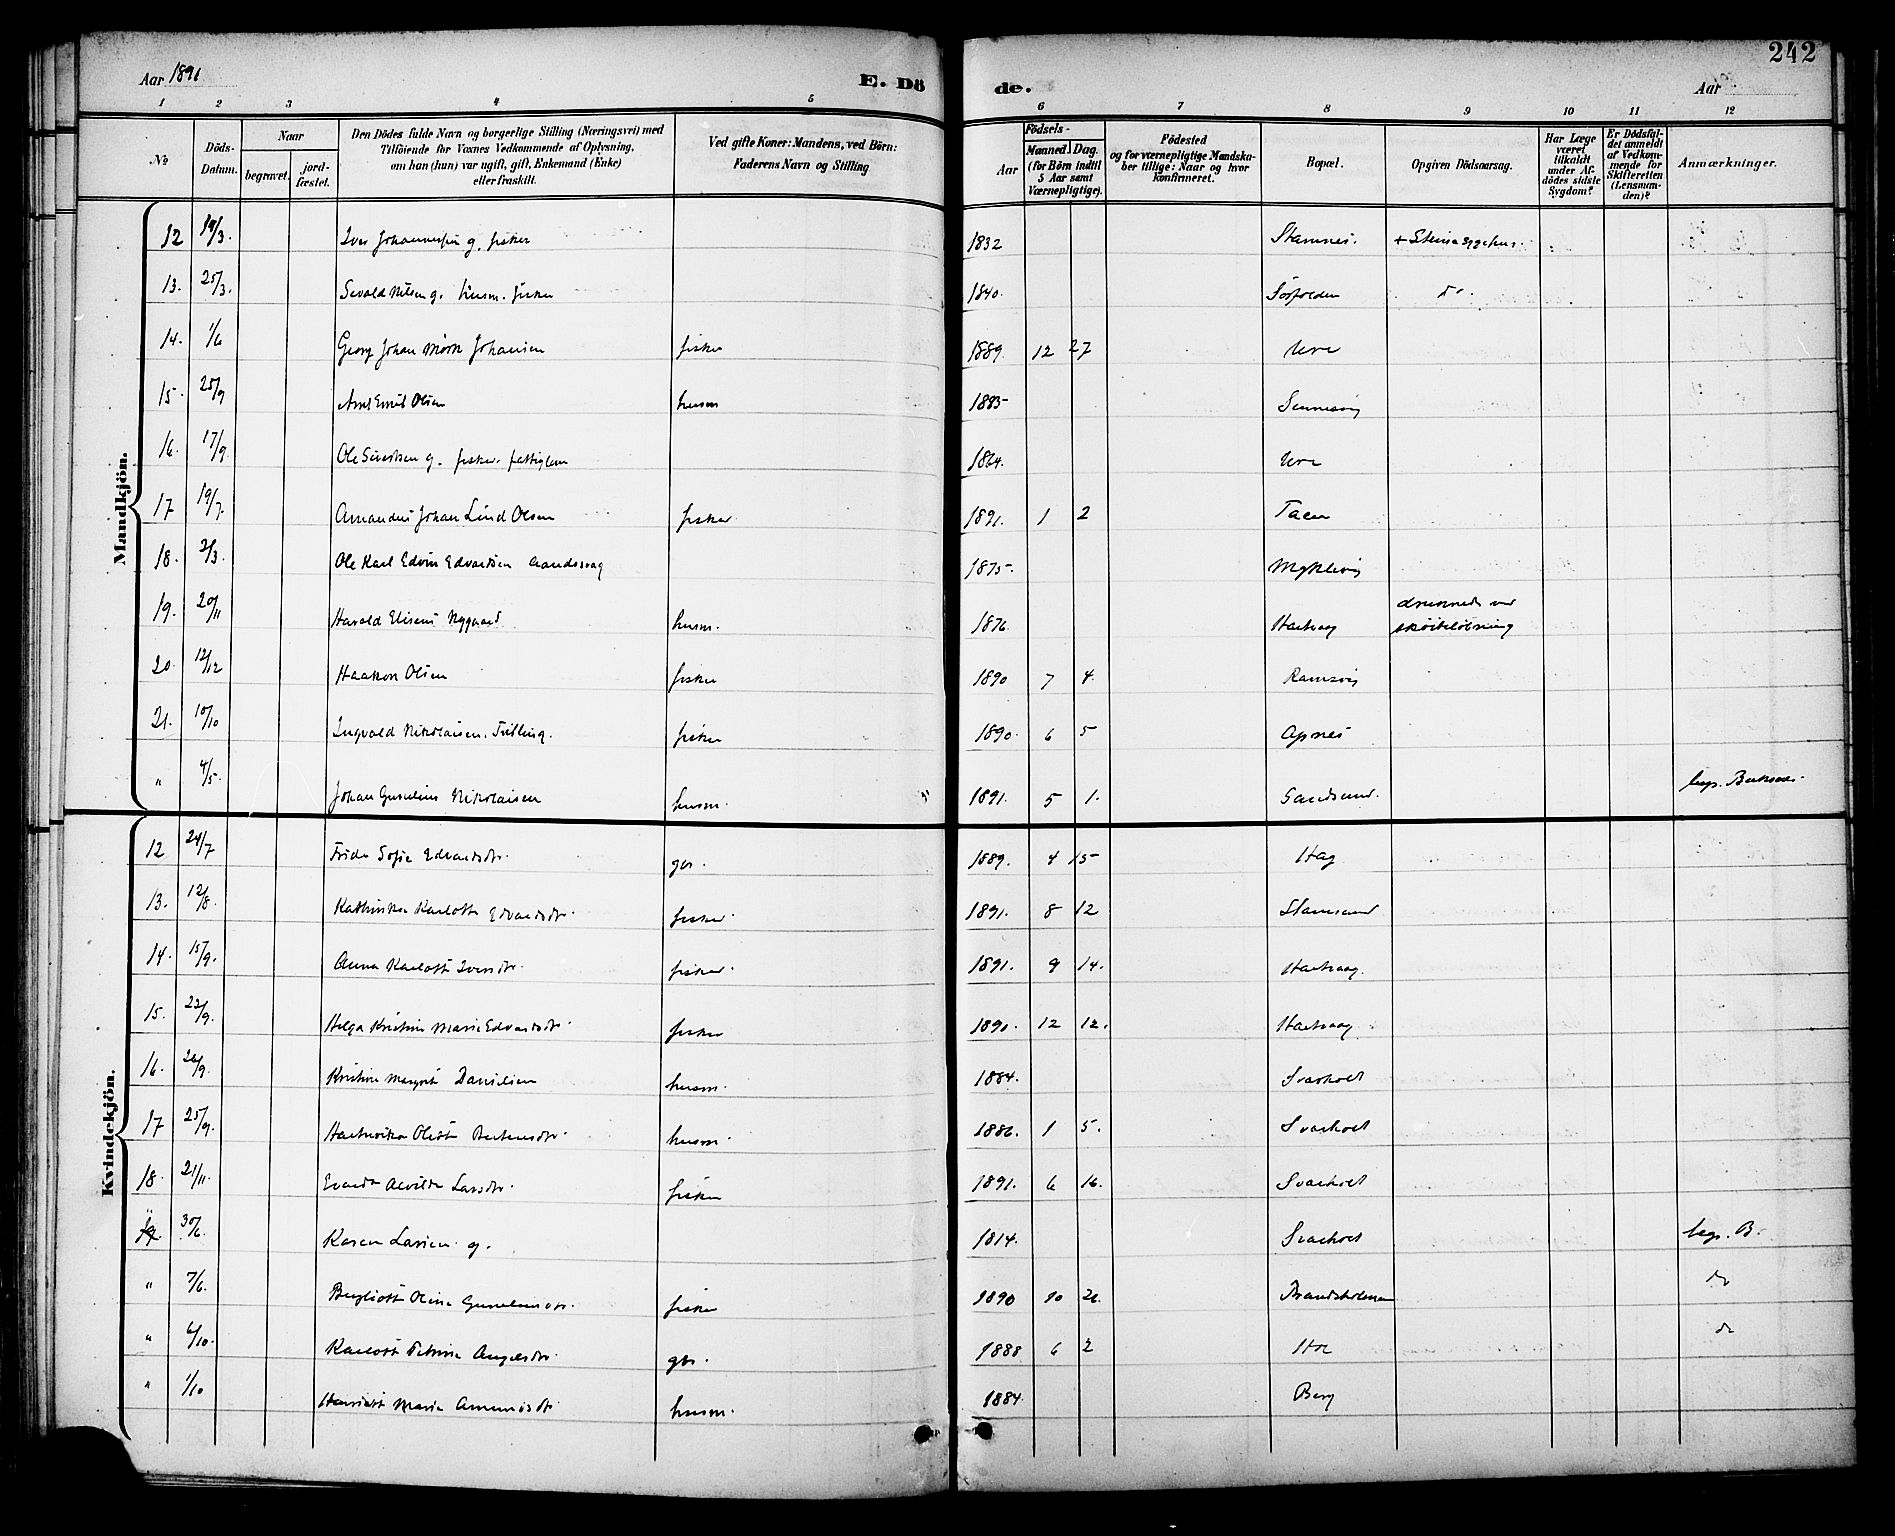 242
Aar 1891
E. Dö
de.
Aar
1 2 3 4 5 6 7 8 9 10 11 12
No
Döds-
Datum.
Naar
begravet.
jord-
fæstet.
Den Dödes fulde Navn og borgerlige Stilling (Næringsvei) med
Tilföiende for Voxnes Vedkommende af Oplysning,
om han (hun) var ugift, gift, Enkemand (Enke)
eller fraskilt.
Ved gifte Koner: Mandens, ved Börn:
Faderens Navn og Stilling
Födsels-
Aar
Maaned Dag.
(for Börn indtil
5 Aar samt
Værnepligtige).
Födested
og for værnepligtige Mandska-
ber tillige: Naar og hvor
konfirmeret.
Bopæl.
Opgiven Dödsaarsag.
Har Læge
været
tilkaldt
under Af-
dödes sidste
Sygdom?
Er Dödsfal-
det anmeldt
af Vedkom-
mende for
Skifteretten
(Lensman-
den)?
Anmærkninger.
Mandkjön.
12 19/3. Iver Johannessen g. fisker 1832 Stamnes. + Steine sygehus.
13. 25/3. Sevald Nilsen g. husm. fisker 1840. Sörfolden do.
14. 1/6 Georg Johan Mörk Johansen fisker 1889. 12 27 Ure
15. 25/9 Emil Olsen husm 1885 Sennesvig
16. 17/9. Ole Sivertsen g. fisker. fattiglem 1864. Ure
17 19/7. Amandus Johan Lind Olsen fisker 1891. 1 2 Taen
18. 2/3. Ole Karl Edvin Edvardsen aandssvag 1875. Myklevig
19. 20/11 Harald Eliseus Nygaard husm. 1876 Hartvaag druknede ved
skøiteløbning
20. 12/12 Haakon Olsen fisker 1890 7 4. Ramsvig
21. 10/10 Ingvald Nikolaisen. Trilling. fisker 1890. 6 5 Apnes
" 4/5. Johan Gunelius Nikolaisen husm. 1891. 5 1. Sandsund. begr. Buksnes.
Kvindekjön.
12 24/7 Frida Sofie Edvardsdtr. gbr. 1889. 4 15 Hag
13. 12/8. Kathinka Karlotte Edvardsdtr. fisker. 1891. 8 12 Stamsund
14. 15/9. Anna Karlotte Iversdtr. fisker. 1891. 9 14. Hartvaag.
15. 22/9. Helga Kristine Marie Edvardsdtr. fisker 1890. 12 12. Hartvaag.
16. 26/9. Kristine Margrete Danielsen husm. 1884. Svarholt
17 25/9. Hartvikka Olette Bertensdtr. husm. 1886. 1 5. Svarholt
18. 21/11. Alvilde Larsdtr. fisker 1891. 6 16. Svarholt
" 30/6. Karen Larsen g. 1814. Svarholt begr. B.
" 7/6. Bergliotte Oline Guneliusdtr. fisker 1890 10 26. Brandsholmen do
" 6/10. Karlotte Petrine Angelsdtr. gbr. 1888 6 2 Hol do
" 1/10 Henriette Marie Amundsdtr. husm. 1884. Berg